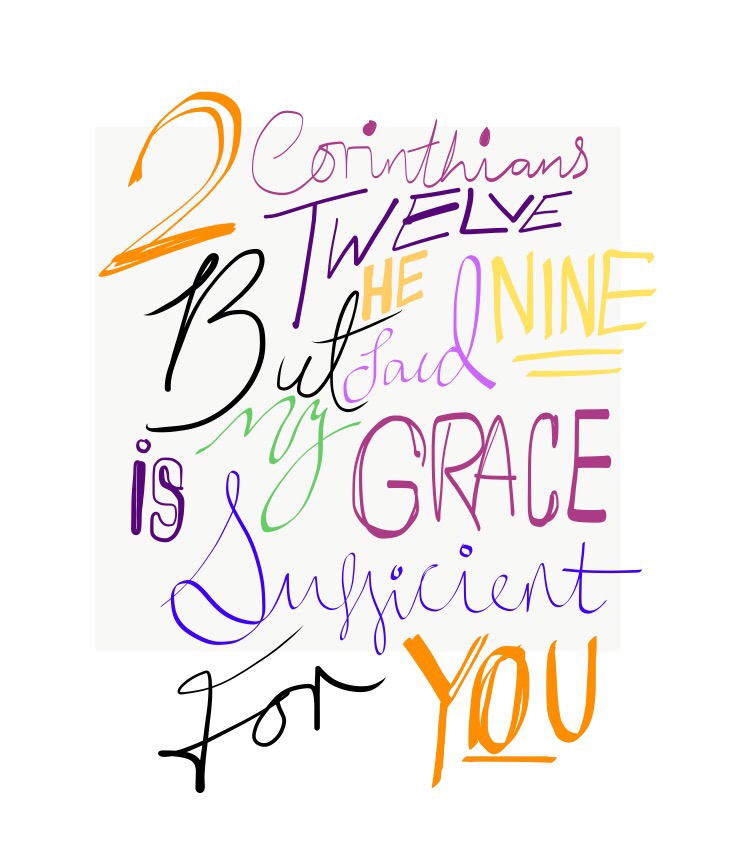 2 Corinthians
TWELVE
NINE
But HE said
my GRACE
is
Sufficient
For YOU